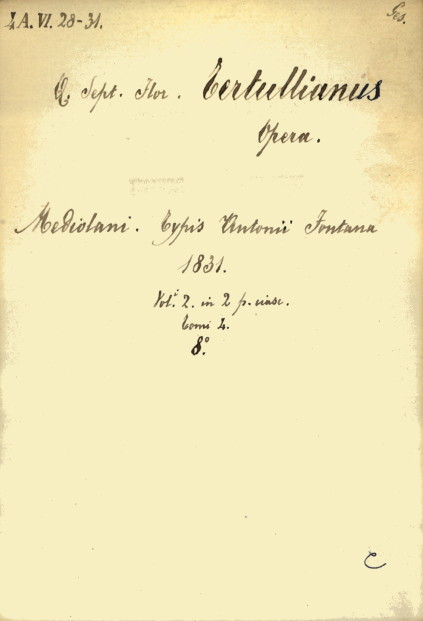 4A. VI. 28-31.
Ges.
Q. Sept. Flor. Tertullianus
Opera.
Mediolani. Typis Antonii Fontana
1831.
Vol.i 2. in 2 p. ciasc.
Tomi 4.
8.º
C